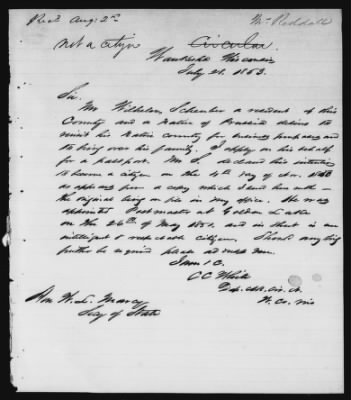 Recd Aug. 2nd
Mr Reddall
not a citizen Circular
Waukesha Wisconsin
July 21. 1853.
Sir.
Mr Wilhelm Schenber a resident of this
County and a native of Prussia desires to
visit his native country for business purposes and
to bring over his family. I apply on his behalf
for a passport. Mr S. declared his intention
to become a citizen on the 4th day of Nov.
as appears from a copy which I send herewith—
the original being on file in my office. He was
appointed Postmaster at Golden Lake
on the 26th of May 1851, and in short is an
intelligent & respectable citizen. Should anything
further be required please advise me.
C C White
Dep. Clk. Cir. Ct.
W. Co. Wis
Hon W. L. Marcy
Secy of State